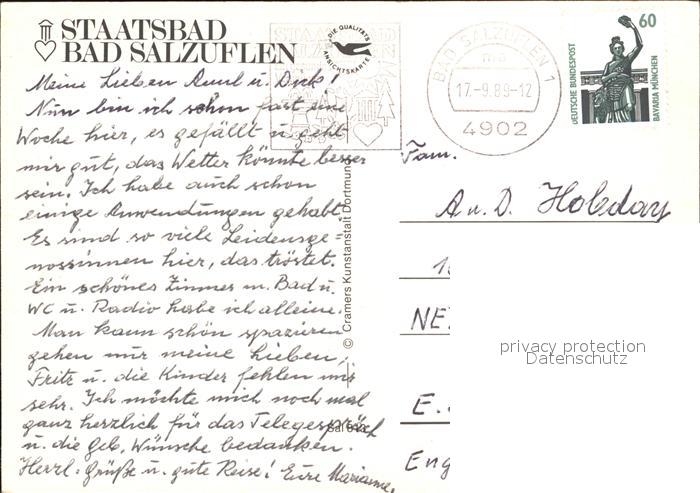 STAATSBAD
BAD SALZUFLEN
DIE QUALITÄTS
ANSICHTSKARTE
STAATSBAD
SALZUFLEN
BAD SALZUFLEN 1
ma
17.-9.89-12
4902
60
DEUTSCHE BUNDESPOST
BAVARIA MÜNCHEN
Meine Lieben Anul u. Dick!
Nun bin ich schon fast eine
Woche hier, es gefällt u. geht
mir gut, das Wetter könnte besser
sein. Ich habe auch schon
einige Anwendungen gehabt.
Es sind so viele Leidensge=
nossinnen hier, das tröstet.
Ein schönes Zimmer m. Bad u.
WC u. Radio habe ich alleine.
Man kann schön spazieren
gehen nur meine Lieben,
Fritz u. die Kinder fehlen mir
sehr. Ich möchte mich noch mal
ganz herzlich für das Telegespräch
u. die Geb. Wünsche bedanken.
Herzl. Grüße u. gute Reise! Eure Marianne.
© Cramers Kunstanstalt Dortmund
Fam.
A u. D. Holeday
NE
E.
Eng
privacy protection
Datenschutz